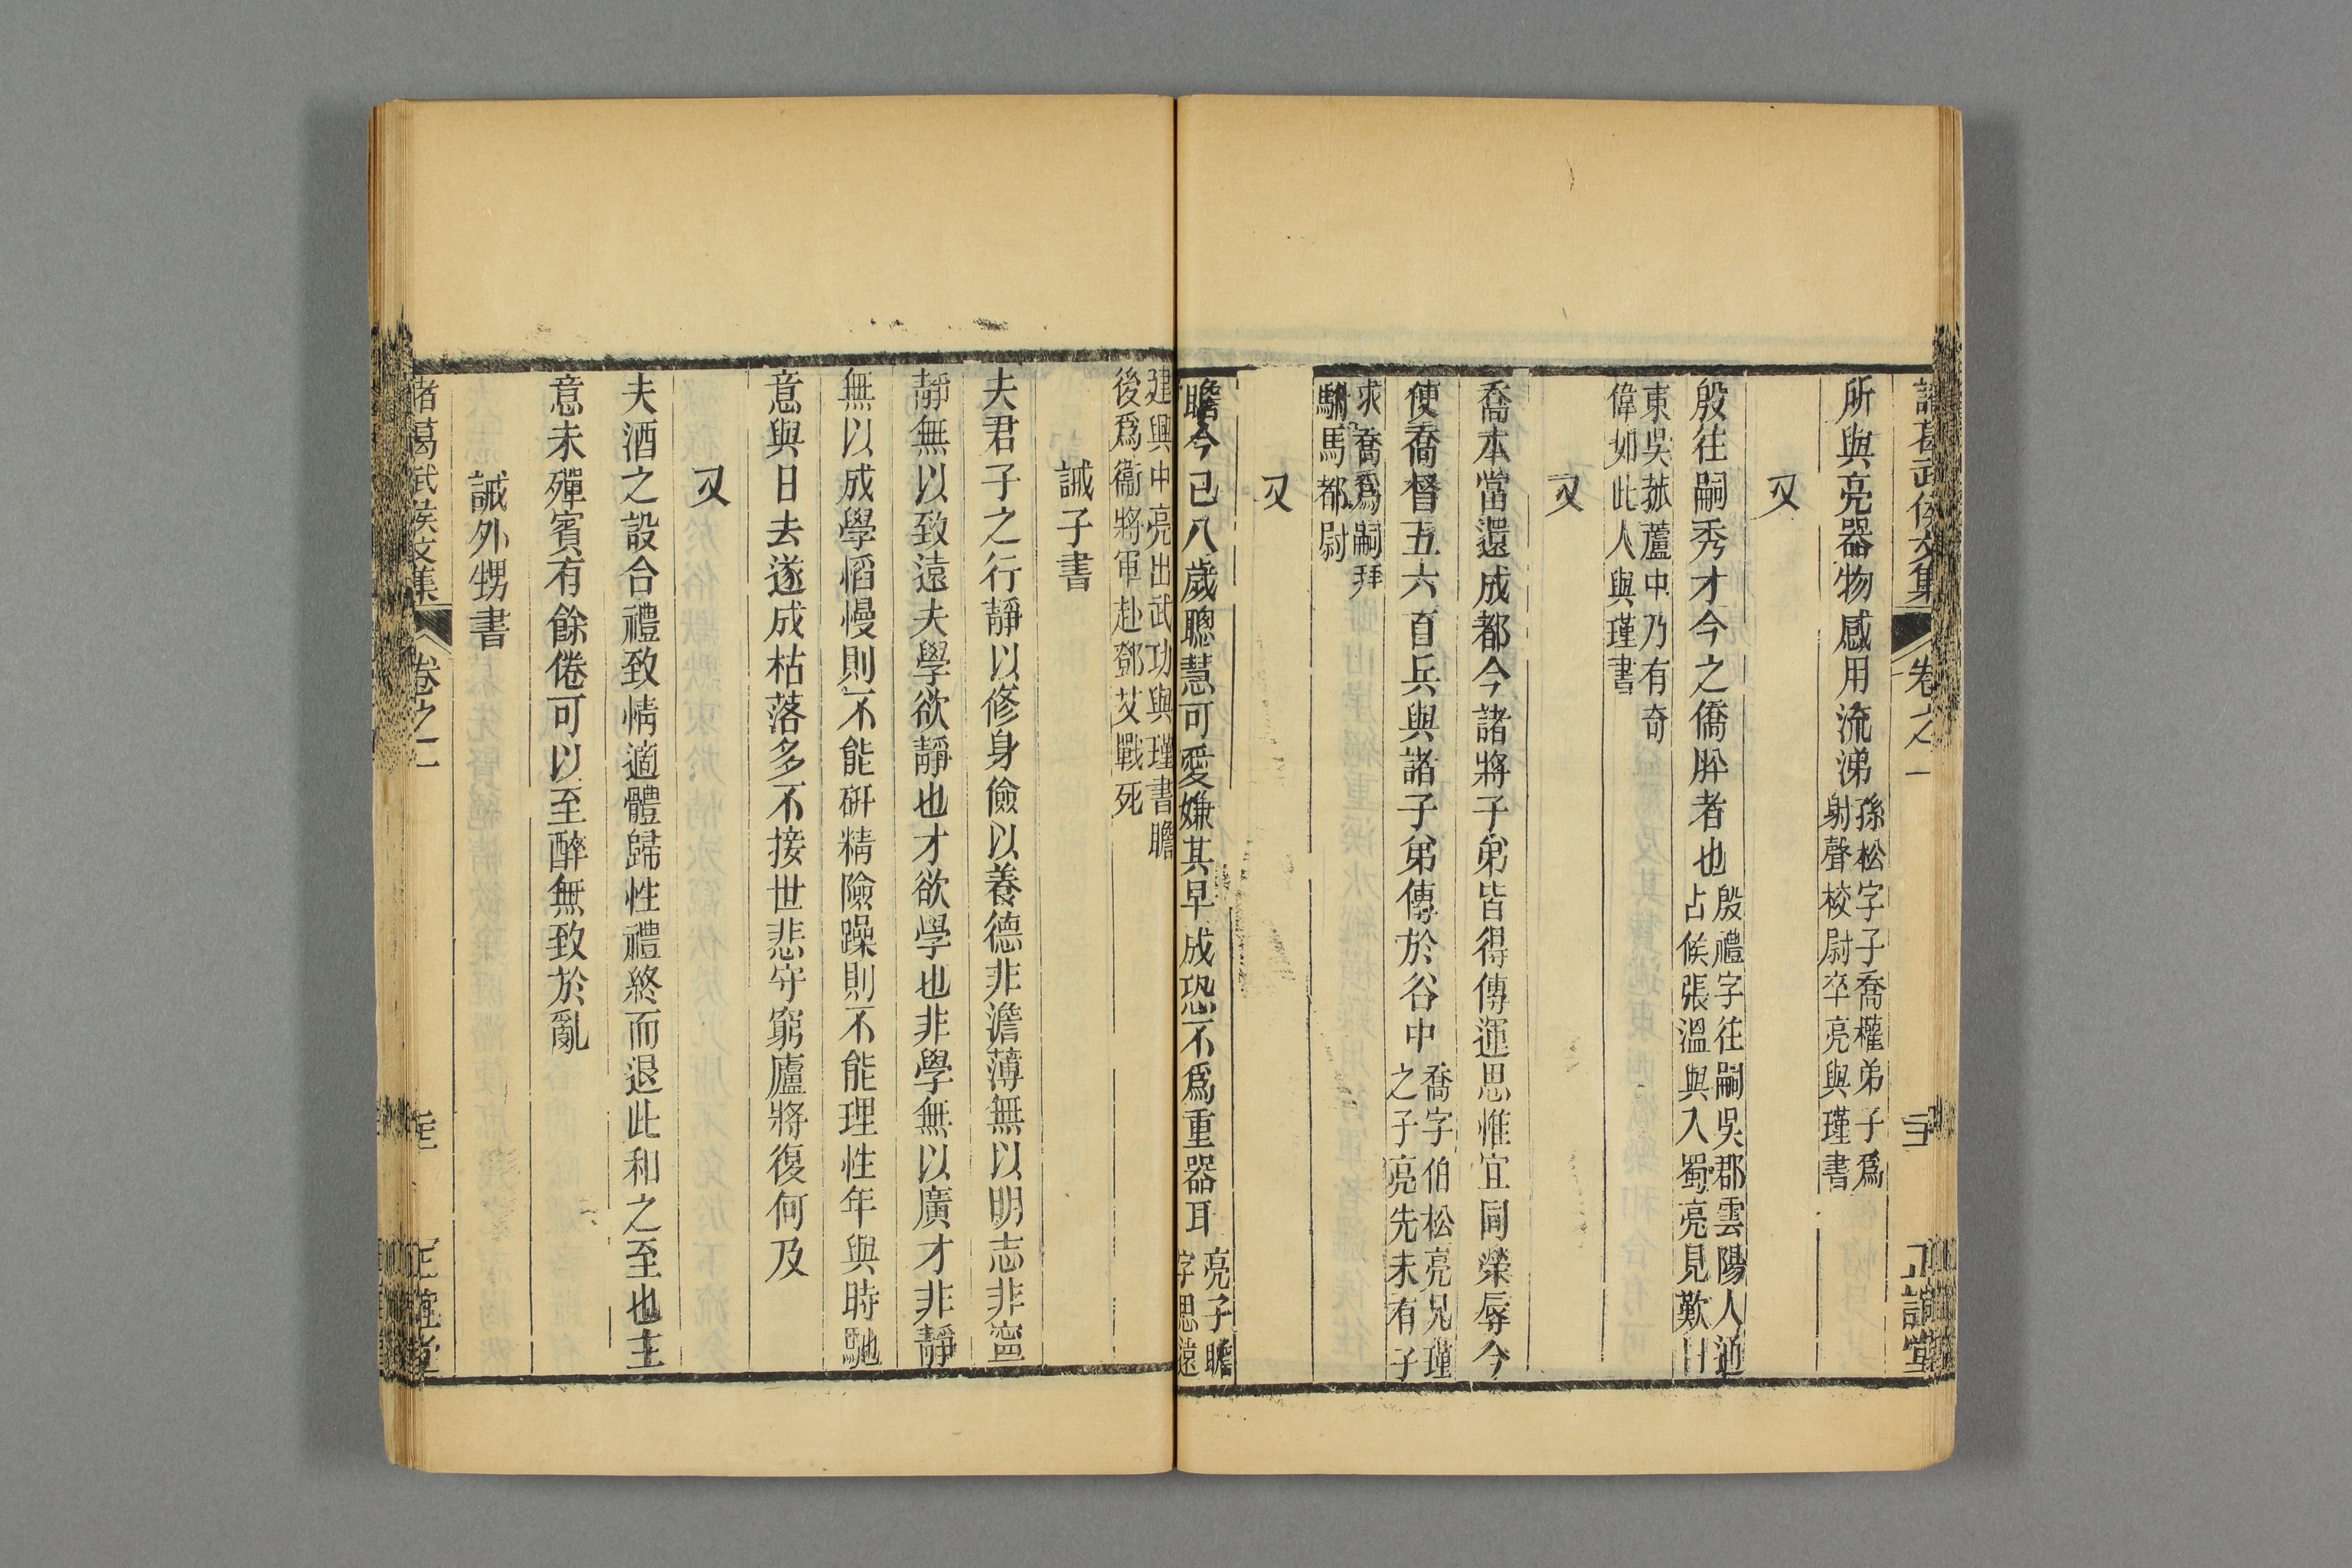 諸葛武侯文集 卷之一 二十 正誼堂
所與亮器物感用流涕孫松字子喬權弟子爲
射聲校尉卒亮與瑾書
又
殷往嗣秀才今之僑肸者也殷禮字往嗣吳郡雲陽人通
占候張溫與入蜀亮見歎曰
東吳菰蘆中乃有奇
偉如此人與瑾書
又
喬本當還成都今諸將子弟皆得傳運思惟宜同榮辱今
使喬督五六百兵與諸子弟傳於谷中喬字伯松亮兄瑾
之子亮先未有子
求喬爲嗣拜
駙馬都尉
又
瞻今已八歲聰慧可愛嫌其早成恐不爲重器耳亮子瞻
字思遠
建興中亮出武功與瑾書瞻
後爲衞將軍赴鄧艾戰死
誡子書
夫君子之行靜以修身儉以養德非澹薄無以明志非寧
靜無以致遠夫學欲靜也才欲學也非學無以廣才非靜
無以成學慆慢則不能研精險躁則不能理性年與時馳
意與日去遂成枯落多不接世悲守窮廬將復何及
又
夫酒之設合禮致情適體歸性禮終而退此和之至也主
意未殫賓有餘倦可以至醉無致於亂
誡外甥書
諸葛武侯文集 卷之一 正誼堂